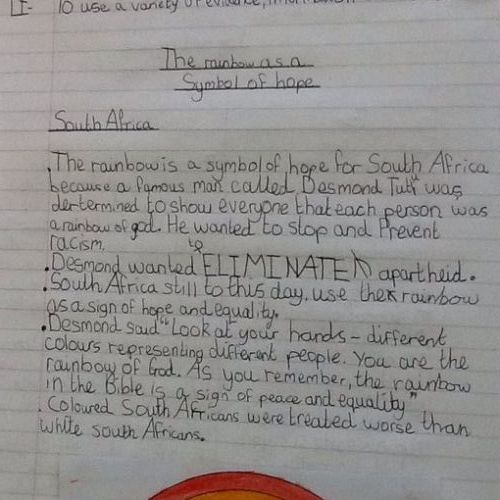 LI- To use a variety of evidence,
The rainbow as a
Symbol of hope
South Africa
.The rainbow is a symbol of hope for South Africa
because a famous man called Desmond Tutu was
dertermined to show everyone that each person was
a rainbow of god. He wanted to stop and Prevent
racism.
to
.Desmond wanted ELIMINATE apartheid.
.South Africa still to this day. use the rainbow
as a sign of hope and equality.
.Desmond said "Look at your hands - different
colours representing different people. You are the
rainboy of God. As you remember, the rainbow
in the Bible is a sign of peace and equality"
. Coloured South Africans were treated worse than
white south Africans.